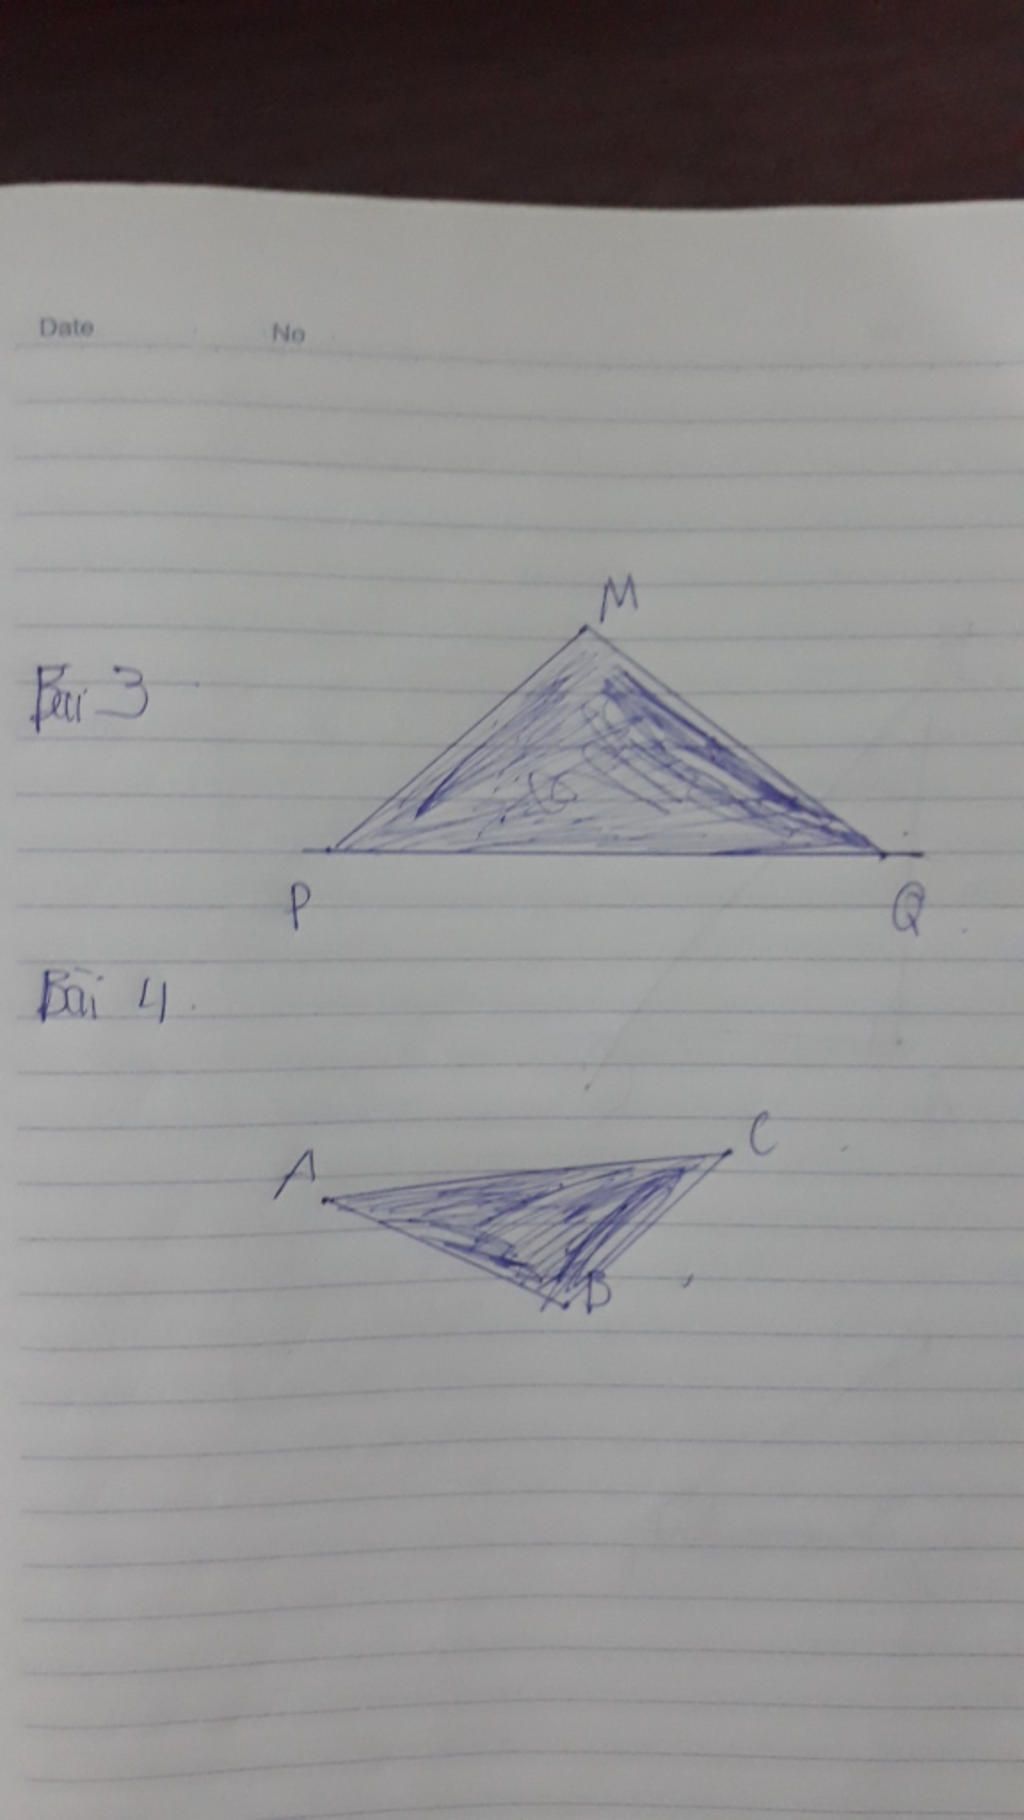 Date No
M
Bài 3
P Q
Bài 4.
C
A
B